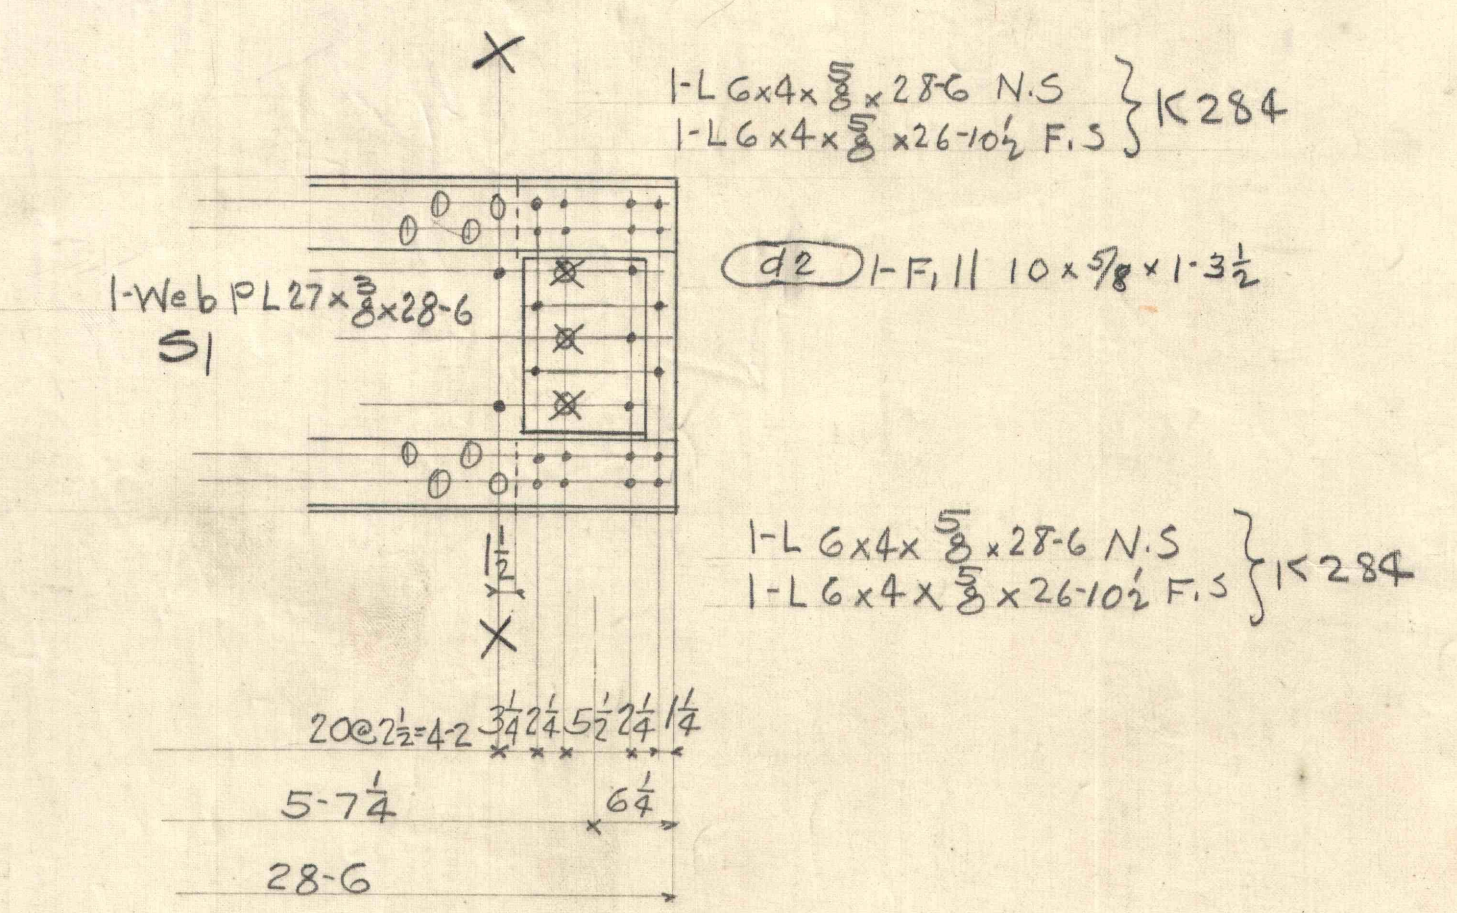 X
1-L 6x4x 5/8 x 28-6 N.S
1-L 6 x4 x 5/8 x26-10 1/2 F.S } K284
d2 1-Fill 10 x 5/8 x 1-3 1/2
1-Web PL 27 x 3/8 x 28-6
S1
1-L 6x4x 5/8 x 28-6 N.S
1-L 6 x 4 x 5/8 x 26-10 1/2 F.S } K284
1 1/2
X
20@2 1/2=4-2 3 1/4 2 1/4 5 1/2 2 1/4 1 1/4
5-7 1/4 6 1/4
28-6